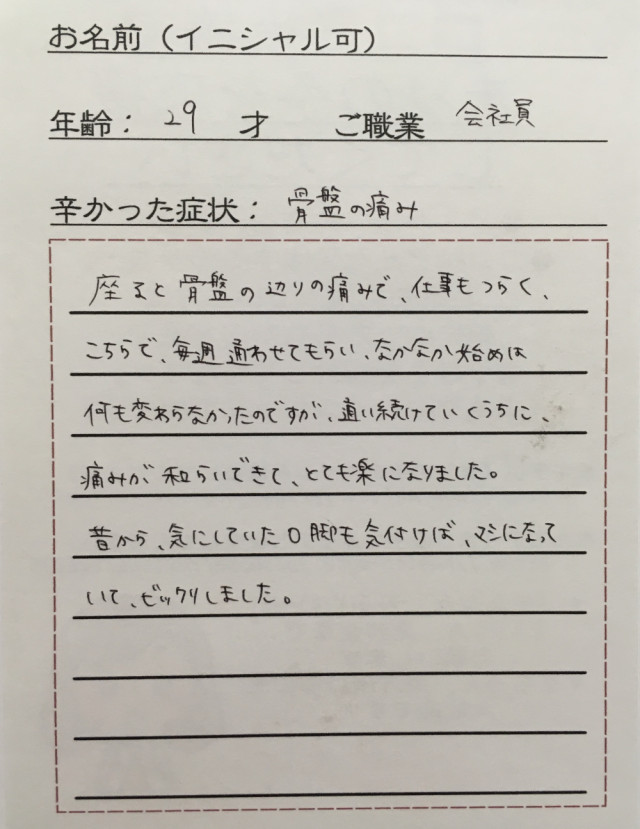 お名前（イニシャル可）
年齢： 29 才 ご職業 会社員
辛かった症状： 骨盤の痛み
座ると骨盤の辺りの痛みで、仕事もつらく、
こちらで、毎週通わせてもらい、なかなか始めは
何も変わらなかったのですが、通い続けていくうちに、
痛みが和らいできて、とても楽になりました。
昔から、気にしていたO脚も気付けば、マシになって
いて、ビックリしました。